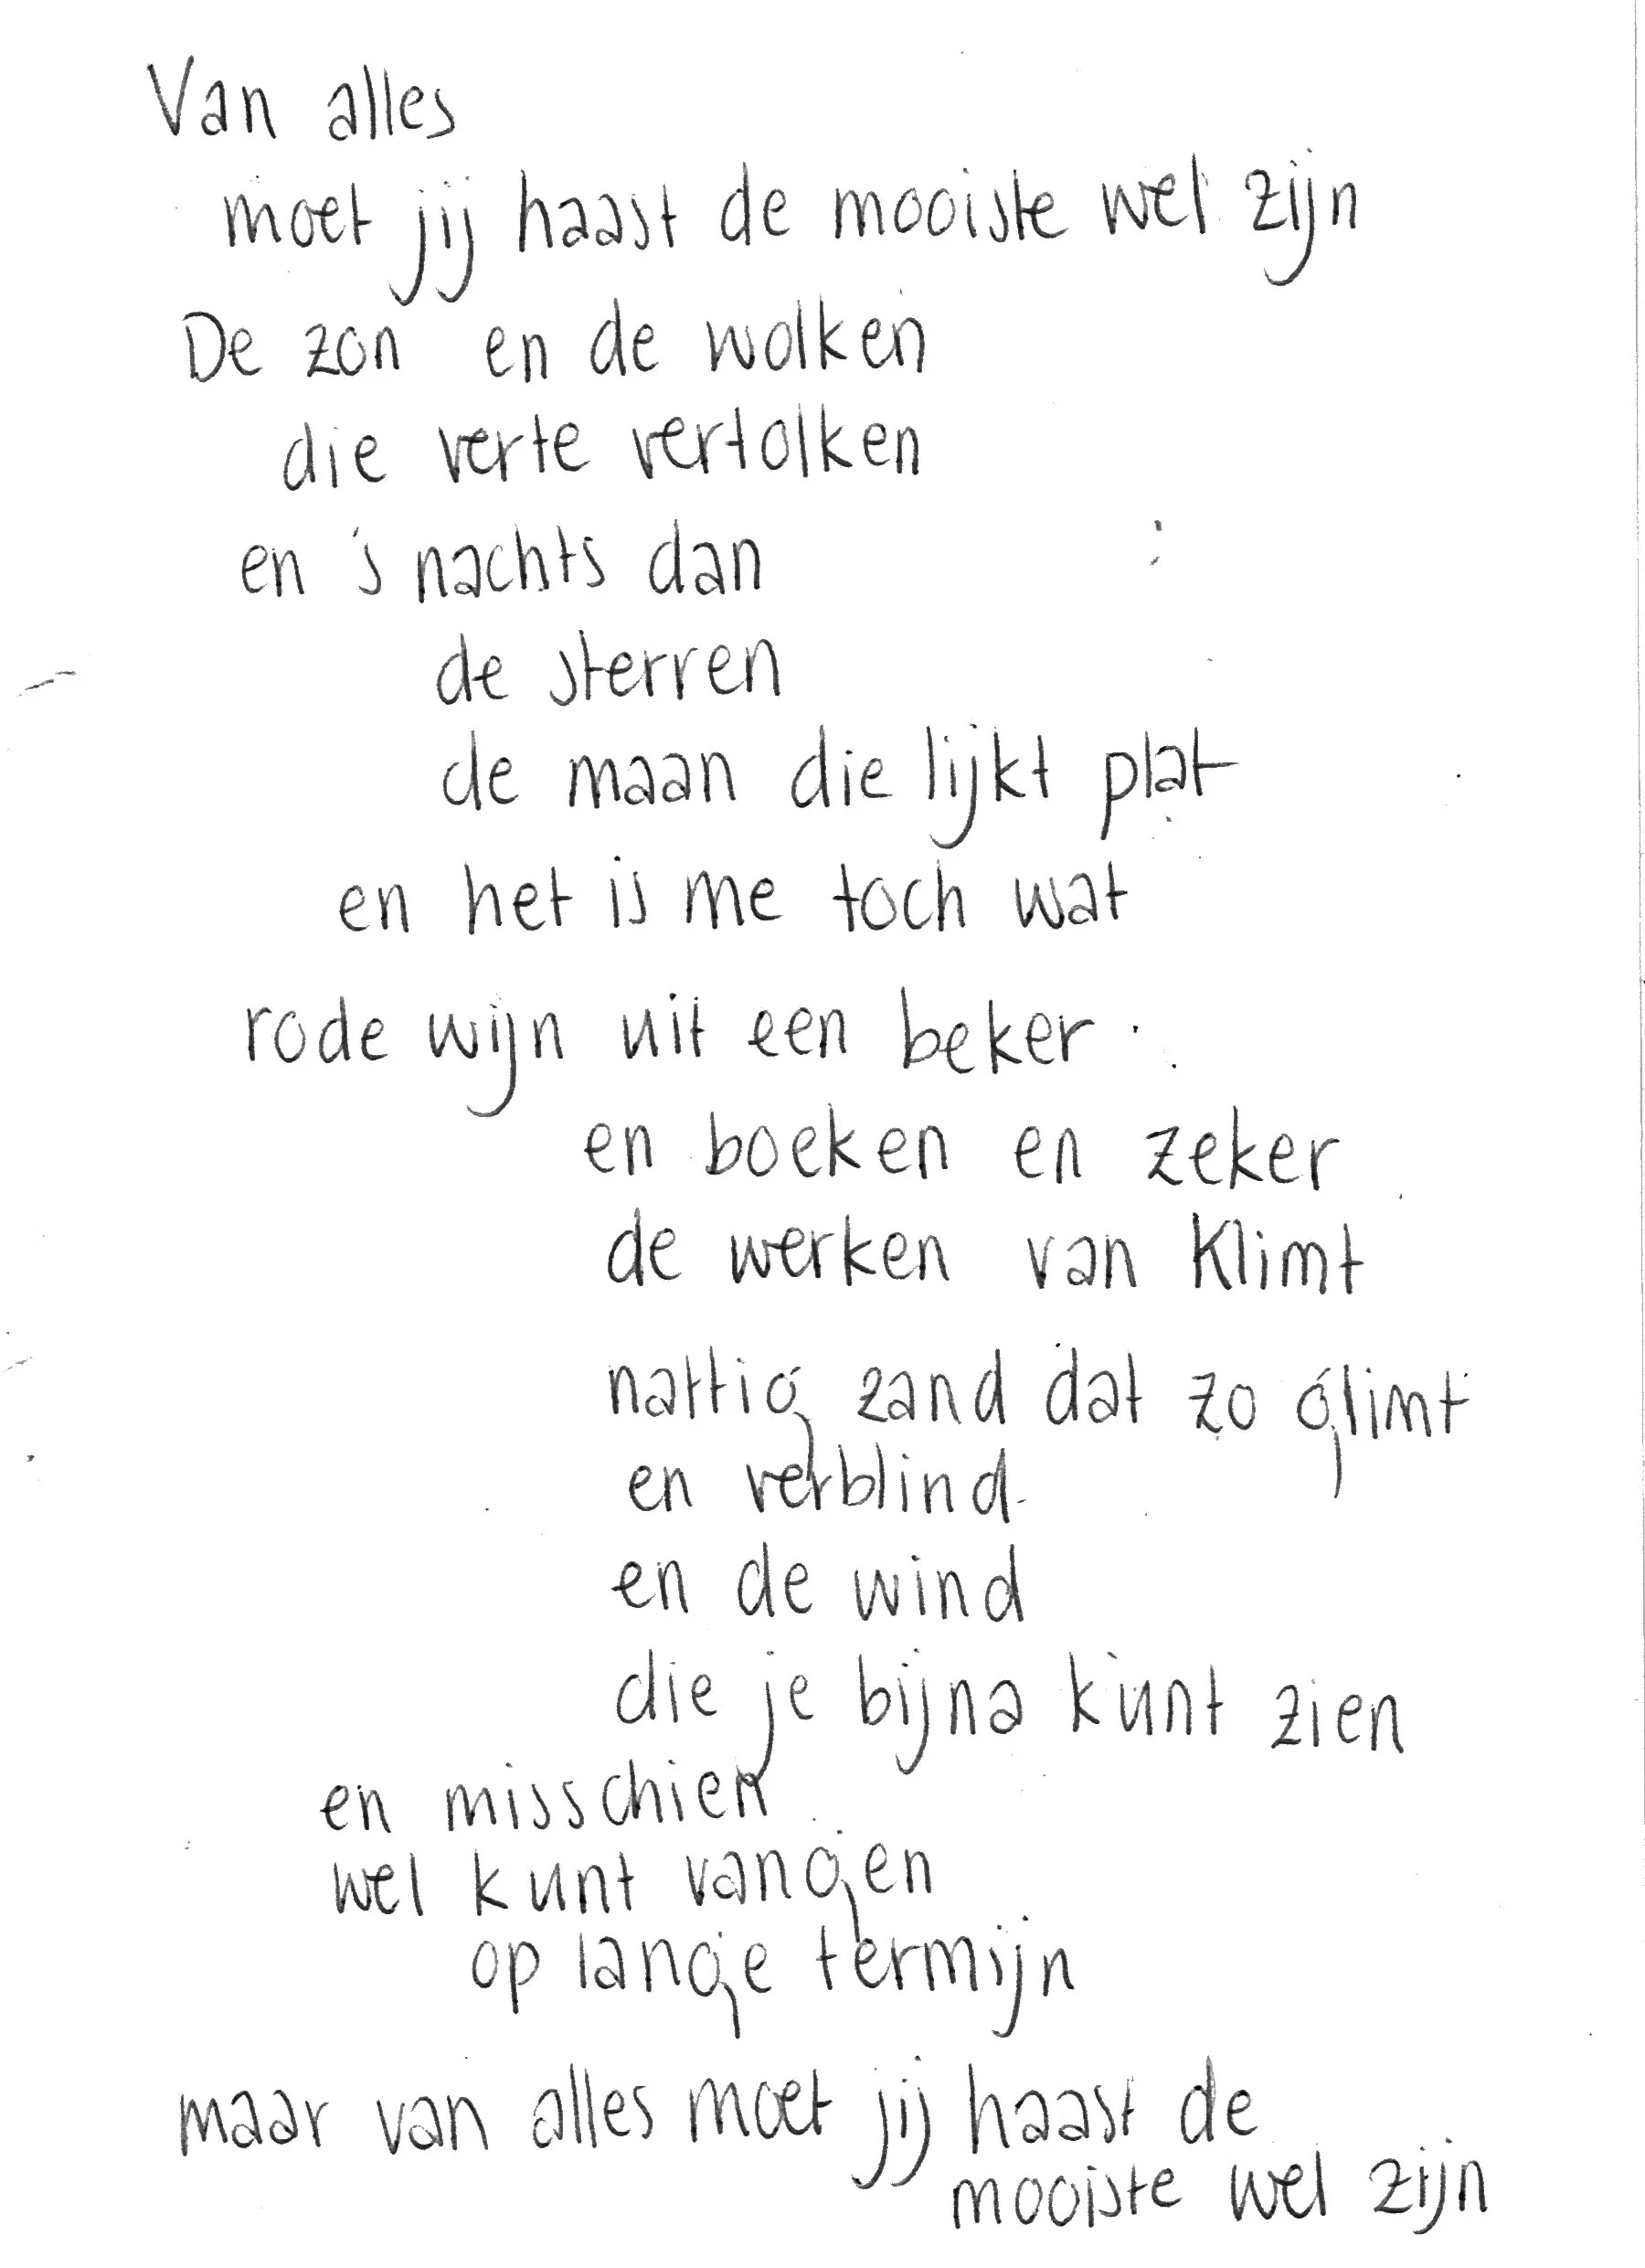 Van alles
moet jij haast de mooiste wel zijn
De zon en de wolken
die verte vertolken
en 's nachts dan
de sterren
de maan die lijkt plat
en het is me toch wat
rode wijn uit een beker
en boeken en zeker
de werken van Klimt
nattig zand dat zo glimt
en verblind
en de wind
die je bijna kunt zien
en misschien
wel kunt vangen
op lange termijn
maar van alles moet jij haast de
mooiste wel zijn